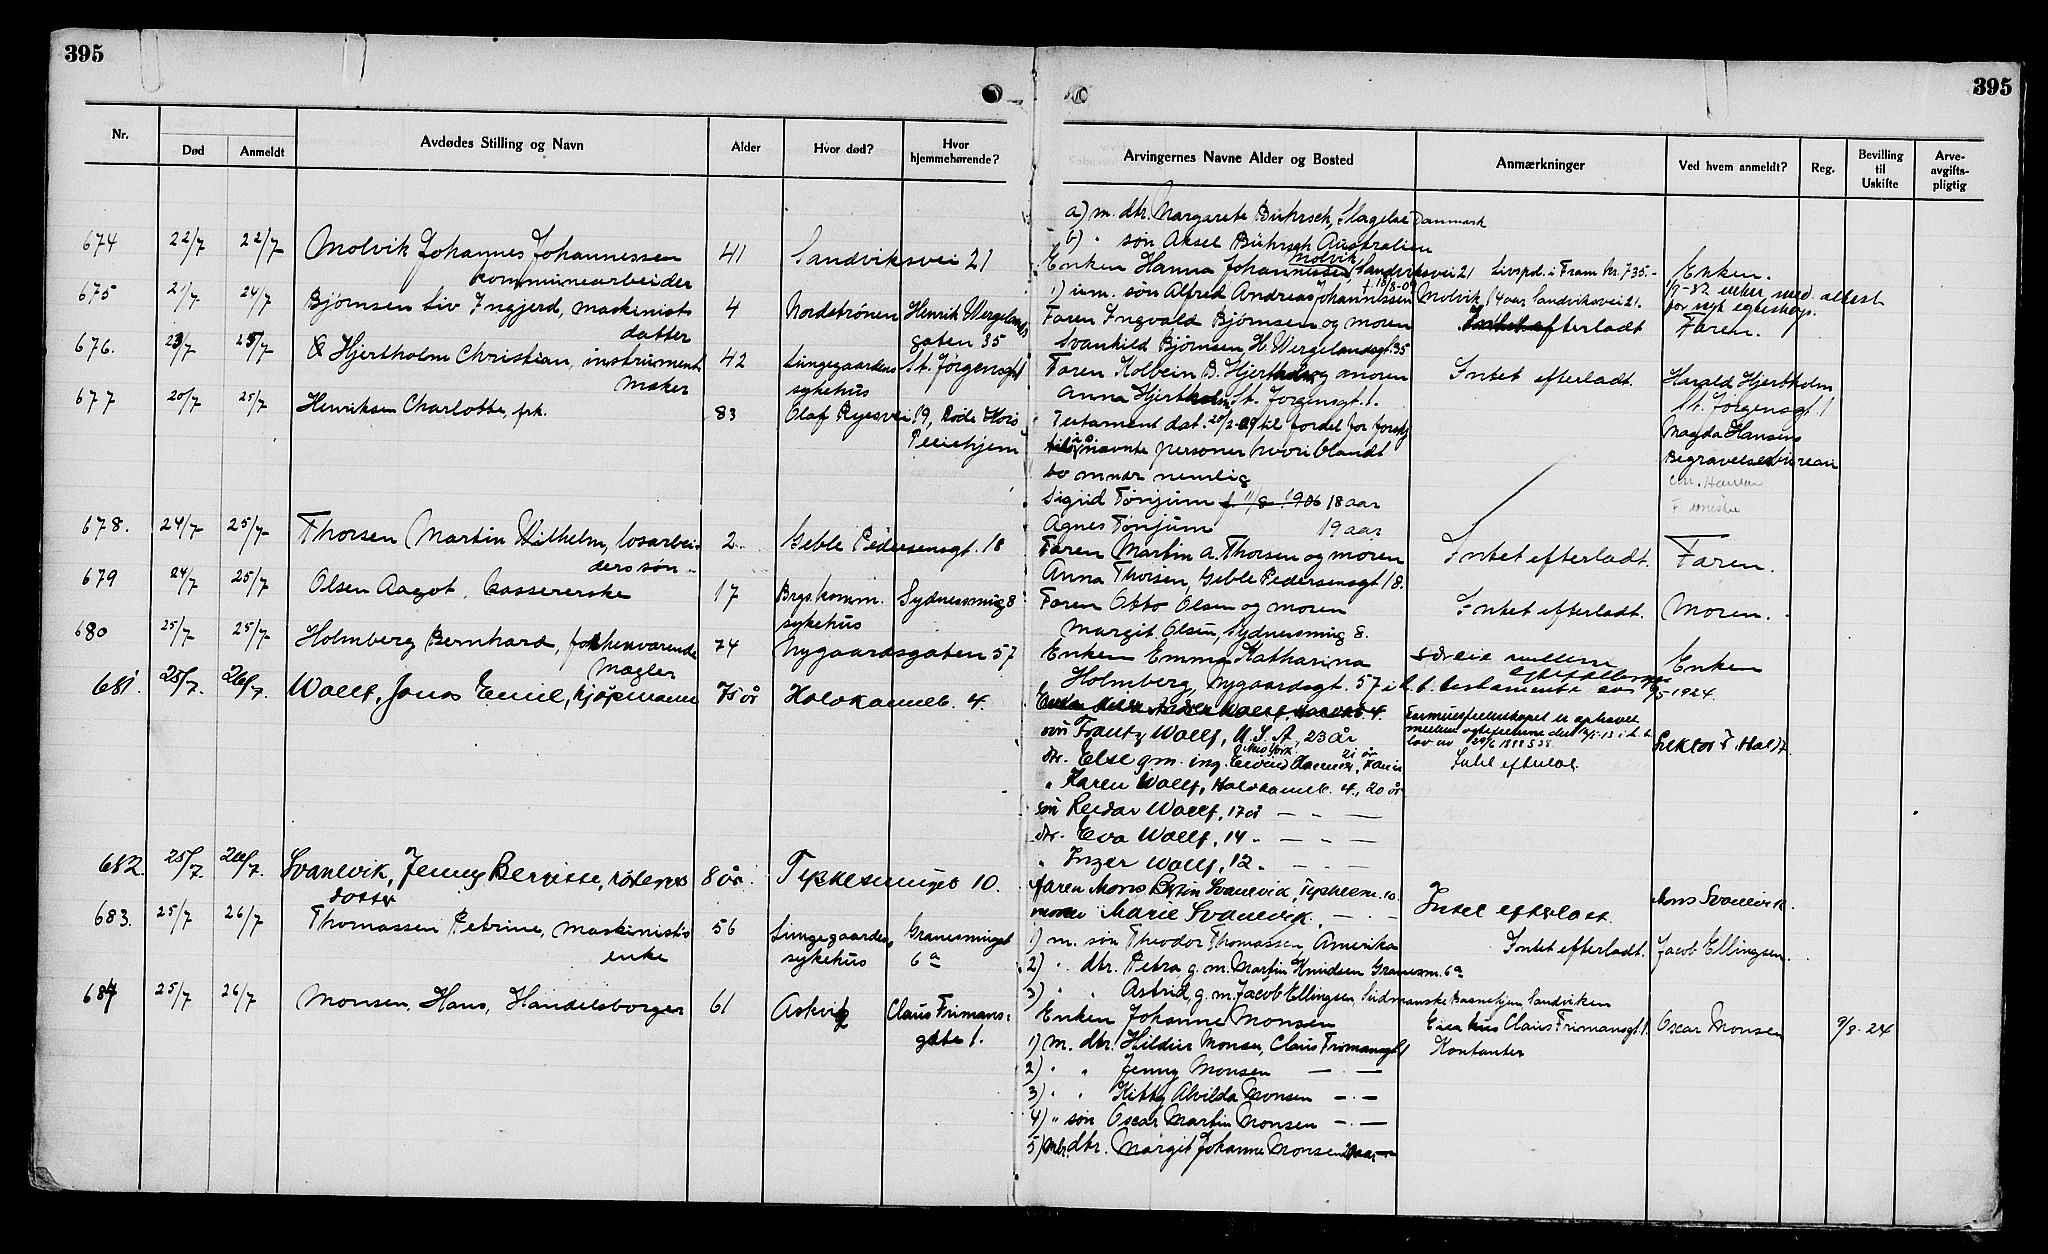 395
395
Nr.
Død
Anmeldt
Avdødes Stilling og Navn
Alder
Hvor død?
Hvor hjemmehørende?
Arvingernes Navne Alder og Bosted
Anmærkninger
Ved hvem anmeldt?
Reg.
Bevilling til Uskifte
Arve-avgifts-pligtig
a) m. dtr. Margarete Bührsch, Slagelse Danmark
b) " søn Aksel Bührsch Australien
674 22/7 22/7 Molvik Johannes Johannessen 41 Sandviksvei 21
kommunearbeider
Molvik
Enken Hanna Johannessen, Sandviksvei 21 Livspol. i Fram Kr. 735.- Enken.
1) um. søn Alfred Andreas Johannessen Molvik, 14 aar Sandviksvei 21.
675 21/7 24/7 Bjørnsen Liv Ingjerd, maskinists 4 Nordstrønen Henrik Wergelands
datter gaten 35
Faren Ingvald Bjørnsen og moren Intet efterladt Faren.
Svanhild Bjørnsen, H. Wergelandsgt. 35
676. 23/7 25/7 Hjertholm Christian, instrument- 42 Lungegaardens St. Jørgensgt 1
maker sykehus
Faren Kolbein B. Hjertholm og moren Intet efterladt. Harald Hjertholm
Anna Hjertholm, St. Jørgensgt. 1. St. Jørgensgt 1
677 20/7 25/7 Henriksen Charlotte, frk. 83 Olaf Ryesvei 19, Røde Kors
Pleiehjem
Testament dat. til fordel for forskj.
nævnte personer hvoriblandt
to mndr nemlig
Sigrid Tønjum f. 11/8 1906 18 aar
Agnes Tønjum 19 aar
Magda Hansens
Begravelsesbureau
678. 24/7 25/7 Thorsen Martin Wilhelm, løsarbei- 2 Geble Pedersensgt. 18
ders søn
Faren Martin A. Thorsen og moren Intet efterladt. Faren.
Anna Thorsen, Geble Pedersensgt 18.
679 24/7 25/7 Olsen Aagot, kassererske 17 Brgs. komm. Sydnessmug 8
sykehus
Faren Otto Olsen og moren Intet efterladt. Moren.
Margit Olsen, Sydnessmug 8.
680 25/7 25/7 Holmberg Bernhard, forhenværende 74 Nygaardsgaten 57
Mægler
Enken Emma Katharina Enken
Holmberg, Nygaardsgt. 57 testamente av 1924.
681. 25/7. 26/7. Wolff, Jonas Emil, kjøpmann 75 år Halvkanneb. 4.
søn Frantz Wolff, U.S.A., 23 år
dtr. Else g.m. ing.
" Karen Wolff, Halvkanneb. 4., 20 år
søn Reidar Wolff, 17 år — — —
dtr. Eva Wolff, 14 " — — —
" Inger Wolff, 12 " — — —
Intet efterlat.
682. 25/7. 26/7. Svanevik, Jenny Bergitte, 8 år.
datter
faren Mons Svanevik,
moren Marie Svanevik, — " — Intet efterlatt. Mons Svanevik.
683. 25/7 26/7 Thomassen Petrine, maskinists 56 Lungegaardens Granesmuget
enke sykehus 6a
1) m. søn Theodor Thomassen, Amerika Intet efterladt. Jacob Ellingsen.
2) " dtr. Petra g.m. Martin Knudsen Granesm. 6a
3) " " Astrid, g.m. Jacob Ellingsen, Barnehjem Sandviken
684 25/7 26/7 Monsen, Hans, Handelsborger 61 Askvik Claus Frimans-
gate 1.
Enken Johanne Monsen hus Claus Frimansgt 1. Oscar Monsen 9/8-24
1) m. dtr. Hildur Monsen, Claus Frimansgt 1 Kontanter
2) " " Jenny Monsen — " —
3) " " Kitty Alvilda Monsen — " —
4) " søn Oscar Martin Monsen — " —
5) dtr. Margit Johanne Monsen